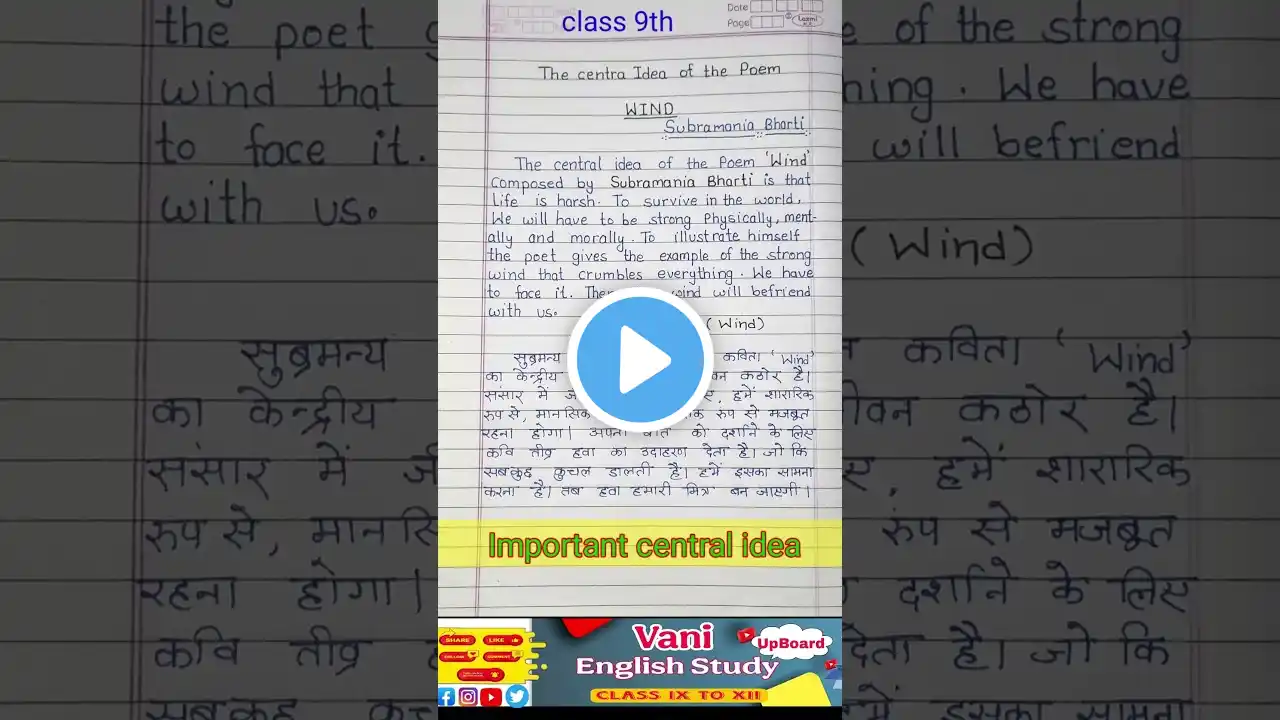 class 9th
Date
Page
Laxmi
The centra Idea of the Poem
WIND
Subramania Bharti
The central idea of the Poem 'Wind'
Composed by Subramania Bharti is that
life is harsh. To survive in the world,
We will have to be strong Physically, ment-
ally and morally. To illustrate himself
the poet gives the example of the strong
wind that crumbles everything. We have
to face it. wind will befriend
with us.
(Wind)
सुब्रमन्य कविता 'Wind'
का केन्द्रीय कठोर है।
संसार में हमें शारारिक
रुप से, रुप से मजबूत
रहना होगा। अपनी बात को दर्शाने के लिए
कवि तीव्र हवा का उदाहरण देता है। जो कि
सबकुछ कुचल डालती है। हमें इसका सामना
करना है। तब हवा हमारी मित्र बन जाएगी।
Important central idea
SHARE
LIKE
FOLLOW
COMMENT
Vani
UpBoard
English Study
CLASS IX TO XII